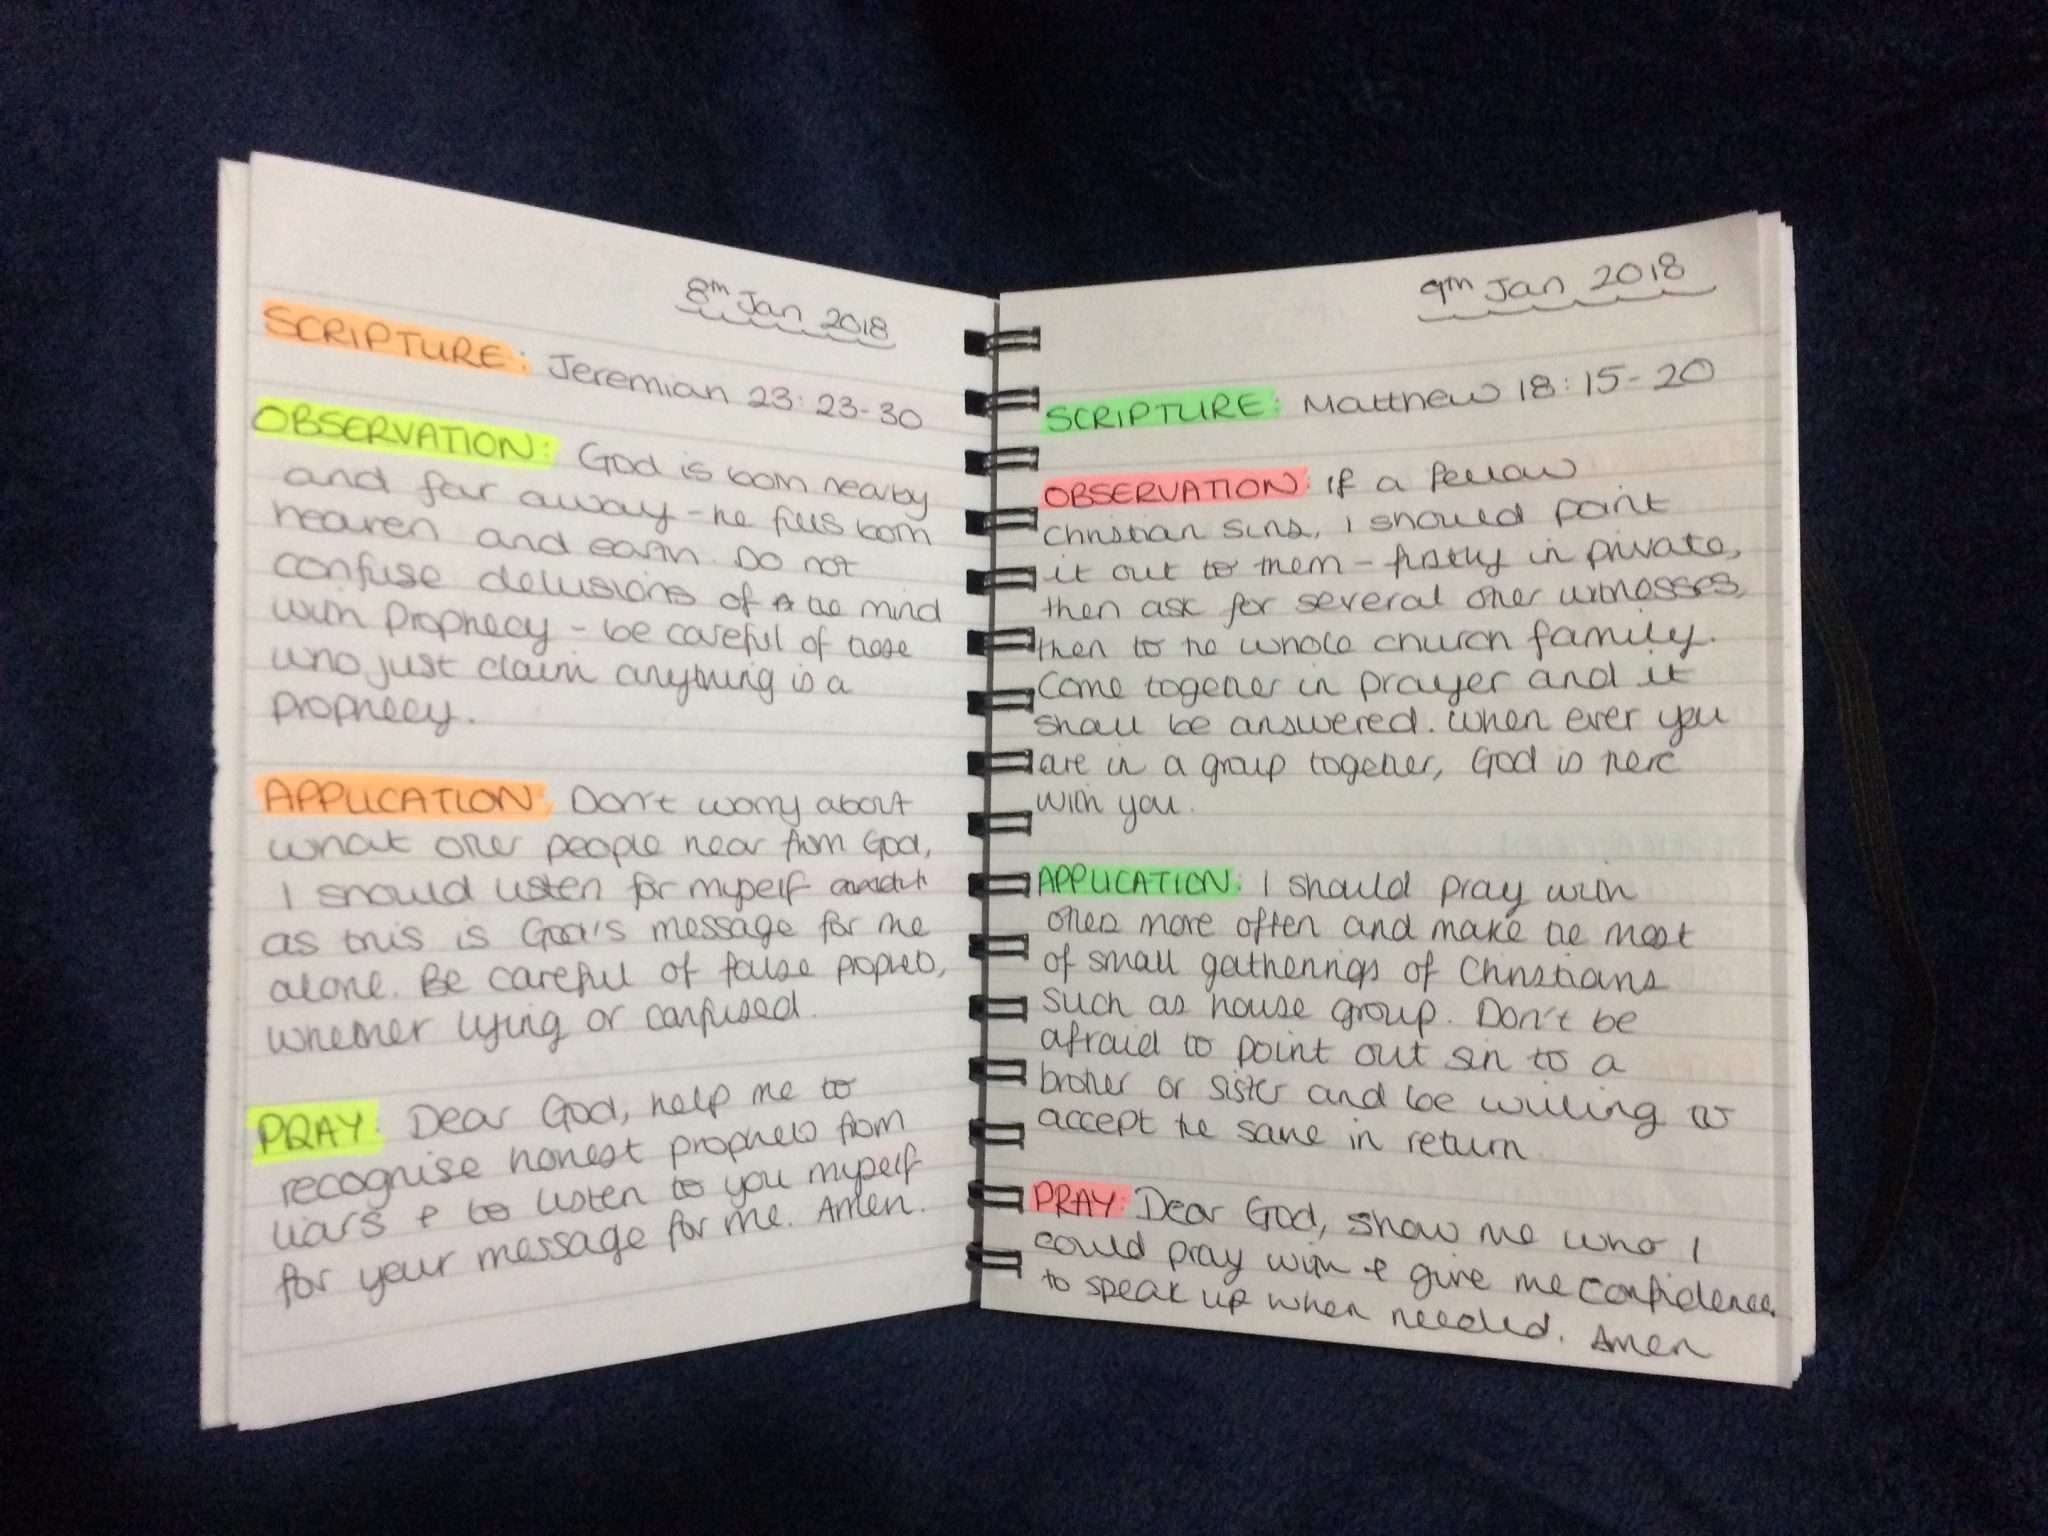 8th Jan 2018
SCRIPTURE: Jeremiah 23:23-30
OBSERVATION: God is both nearby
and far away - he fills both
heaven and earth. Do not
confuse delusions of the mind
with Prophecy - be careful of those
who just claim anything is a
prophecy.
APPLICATION: Don't worry about
what other people hear from God,
I should listen for myself
as this is God's message for me
alone. Be careful of false prophets,
whether lying or confused.
PRAY: Dear God, help me to
recognise honest prophets from
liars & to listen to you myself
for your message for me. Amen.
9th Jan 2018
SCRIPTURE: Matthew 18:15-20
OBSERVATION: If a fellow
Christian sins, I should point
it out to them - firstly in private,
then ask for several other witnesses,
then to the whole church family.
Come together in prayer and it
shall be answered. When ever you
are in a group together, God is here
with you.
APPLICATION: I should pray with
others more often and make the most
of small gatherings of Christians
such as house group. Don't be
afraid to point out sin to a
brother or sister and be willing to
accept the same in return.
PRAY: Dear God, show me who I
could pray with & give me confidence
to speak up when needed. Amen